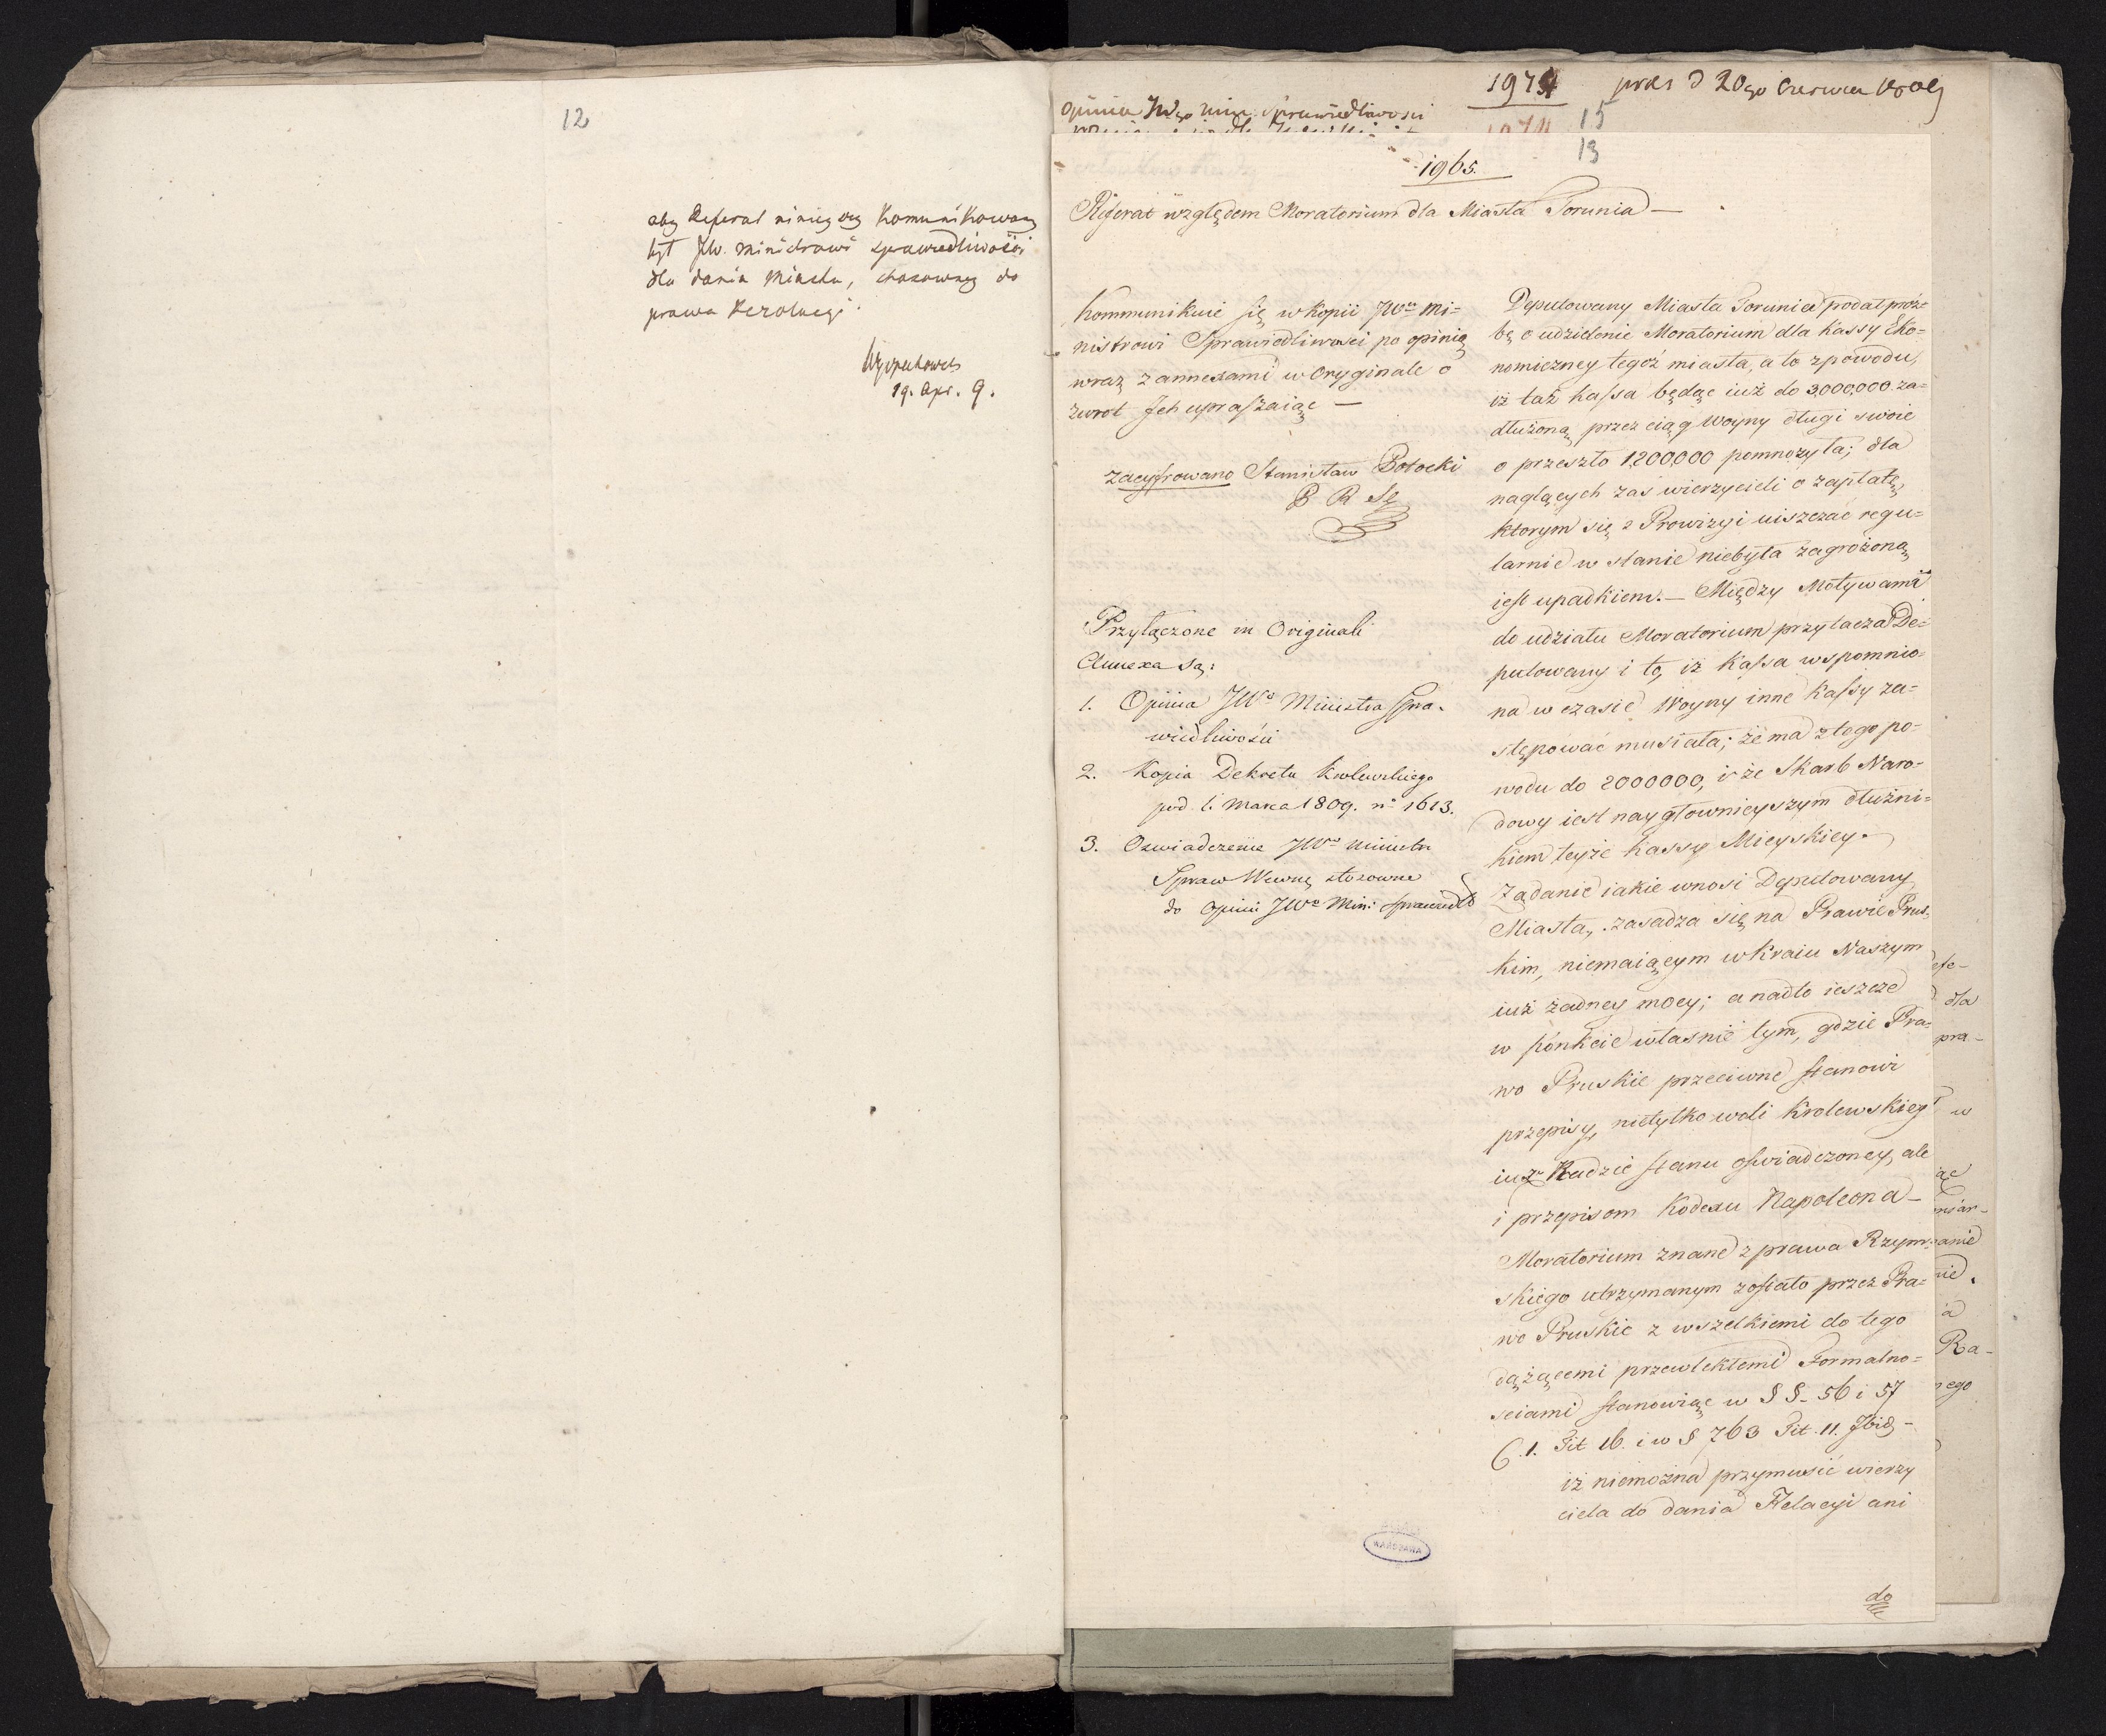 12
aby Referat ninieyszy Kommunikowany
był JW. Ministrowi Sprawiedliwości
dla dania Miastu, stosowney do
prawa Rezolucyi.
19. Apr. 9.
1974 pras d 20go Czerwca 1809
Opinia JWgo Min. Sprawiedliwosci
15
13
1965.
Referat względem Moratorium dla Miasta Torunia —
Kommunikuie się w kopii JWu Mi-
nistrowi Sprawiedliwosci po opinią
wraz z annexami w Oryginale o
zwrot Jch upraszaiąc —
zacyfrowano Stanisław Potocki
P R St
Przyłączone in Originali
Annexa są:
1. Opinia JWo Ministra Spra-
wiedliwości
2. Kopia Dekretu Krolewskiego
pod 1. Marca 1809. no 1613.
3. Oswiadczenie JWo Ministra
Spraw Wewnę stosowne
do Opinii JWo Min: Sprawiedl
Deputowany Miasta Torunia podał proź-
bę o udzielenie Moratorium dla Kassy Eko-
nomiczney tegoż miasta, a to z powodu,
iż taż Kassa będąc iuż do 3,000,000 za-
dłużoną, przez ciąg Woyny długi swoie
o przeszło 1,200,000 pomnożyła; dla
naglących zaś wierzycieli o zapłatę,
ktorym się z Prowizyi uiszczać regu-
larnie w stanie niebyła zagrożoną
iest upadkiem. — Między Motywami
do udziału Moratorium przyłacza De-
putowany i to, iż Kassa wspomnio-
na w czasie Woyny inne Kassy za-
stępować musiała; że ma z tego po-
wodu do 2000000, i że Skarb Naro-
dowy iest naygłownieyszym dłużni-
kiem teyże Kassy Mieyskiey.
Żądanie iakie wnosi Deputowany
Miasta, zasadza się na Prawie Prus-
kim, niemaiącym w Kraiu Naszym
iuż żadney mocy; a nadto ieszcze
w punkcie własnie tym, gdzie Pra-
wo Pruskie przeciwne stanowi
przepisy, nietylko woli Krolewskiey
iuż w Radzie stanu oswiadczoney, ale
i przepisom Kodexu Napoleona —
Moratorium znane z prawa Rzym-
skiego utrzymanym zostało przez Pra-
wo Pruskie z wszelkiemi do tego
dążącemi przewlekłemi Formalno-
sciami stanowiąc w §§. 56 i 57
C. 1. Tit 16. i w § 763 Tit. 11. Ibid —
iż niemożna przymusić wierzy
ciela do dania Dilacyi ani
do
WARSZAWA
dla
pra-
w
Ra-